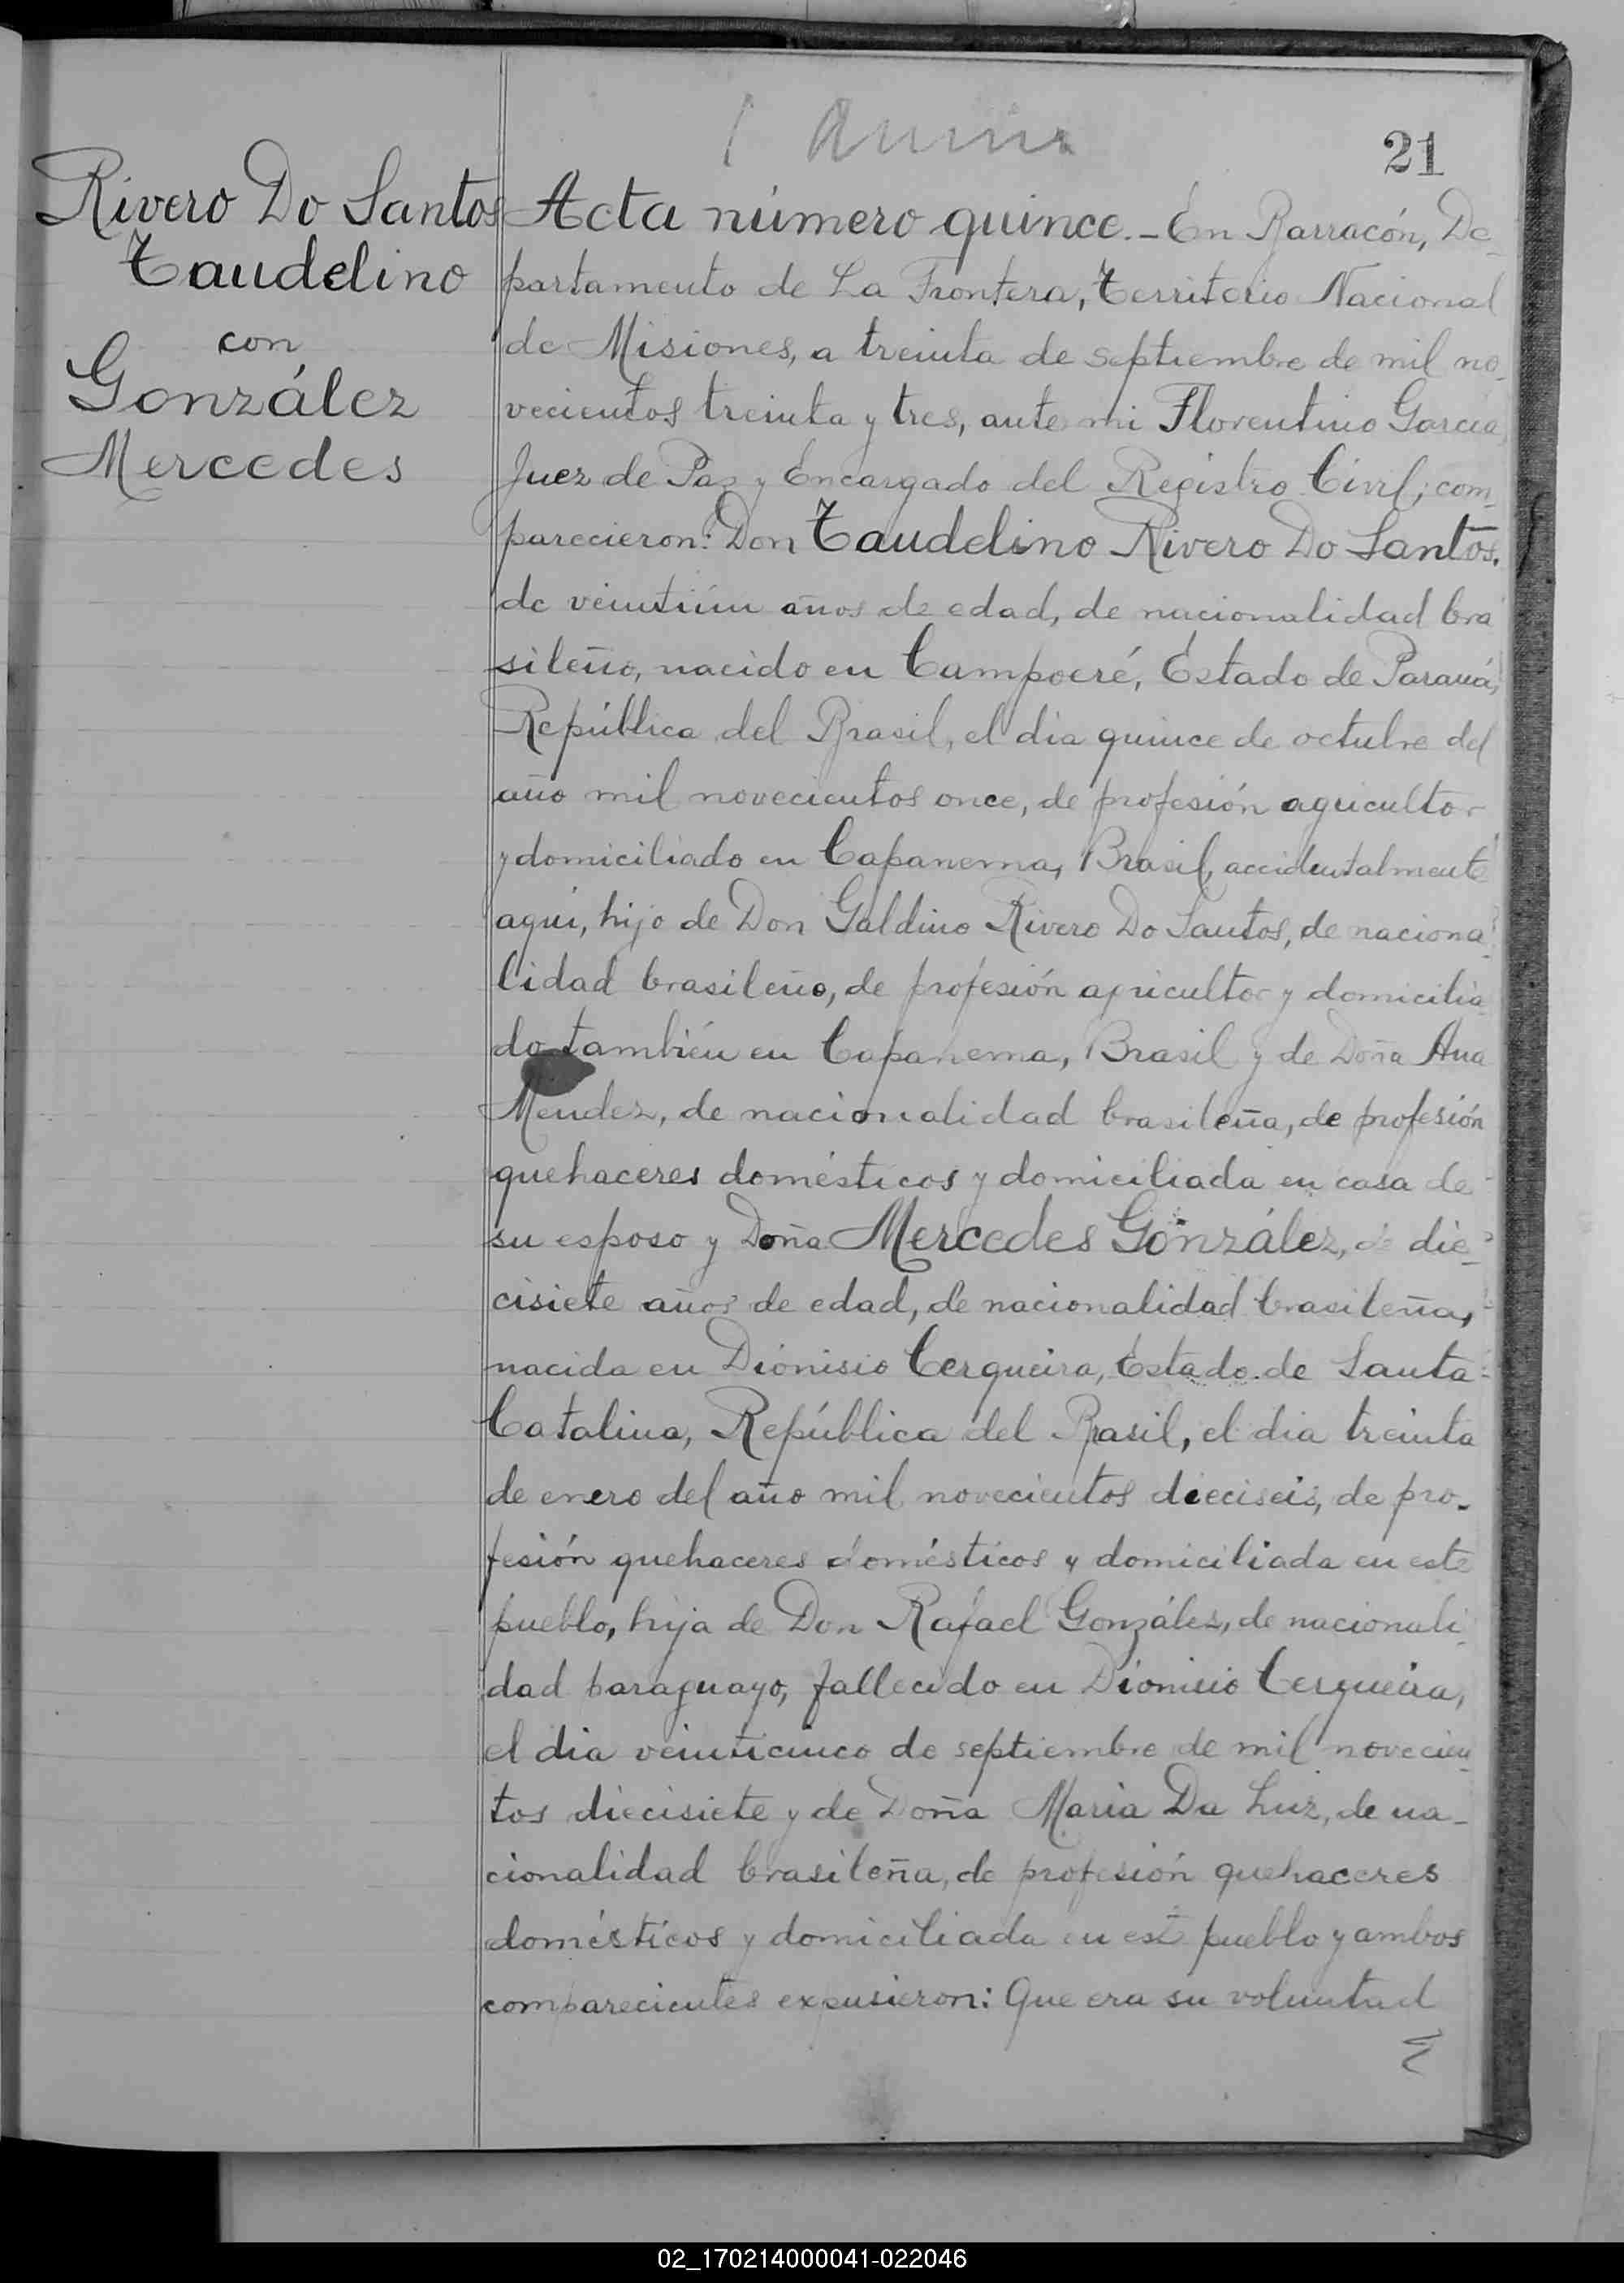 21
Rivero Do Santos
Taudelino
con
González
Mercedes
Acta número quince. - En Barracón, De-
partamento de La Frontera, Territorio Nacional
de Misiones, a treinta de septiembre de mil no-
vecientos treinta y tres, ante mi Florentino García,
Juez de Paz y Encargado del Registro Civil; com-
parecieron: Don Taudelino Rivero Do Santos.
de veintiún años de edad, de nacionalidad bra
sileño, nacido en Campoeré, Estado de Paraná,
República del Brasil, el dia quince de octubre del
año mil novecientos once, de profesión agricultor
y domiciliado en Capanema, Brasil, accidentalmente
aquí, hijo de Don Galdino Rivero Do Santos, de naciona-
lidad brasileño, de profesión agricultor y domicilia-
do también en Capanema, Brasil y de Doña Ana
Mendez, de nacionalidad brasileña, de profesión
quehaceres domésticos y domiciliada en casa de
su esposo y Doña Mercedes González, de die-
cisiete años de edad, de nacionalidad brasileña,
nacida en Dionisio Cerqueira, Estado de Santa
Catalina, República del Brasil, el dia treinta
de enero del año mil novecientos dieciseis, de pro-
fesión quehaceres domésticos y domiciliada en este
pueblo, hija de Don Rafael González, de nacionali-
dad paraguayo, fallecido en Dionisio Cerqueira,
el dia veinticinco de septiembre de mil novecien-
tos diecisiete y de Doña Maria Da Luz, de na-
cionalidad brasileña, de profesión quehaceres
domésticos y domiciliada en este pueblo y ambos
comparecientes expusieron: Que era su voluntad
02_170214000041-022046